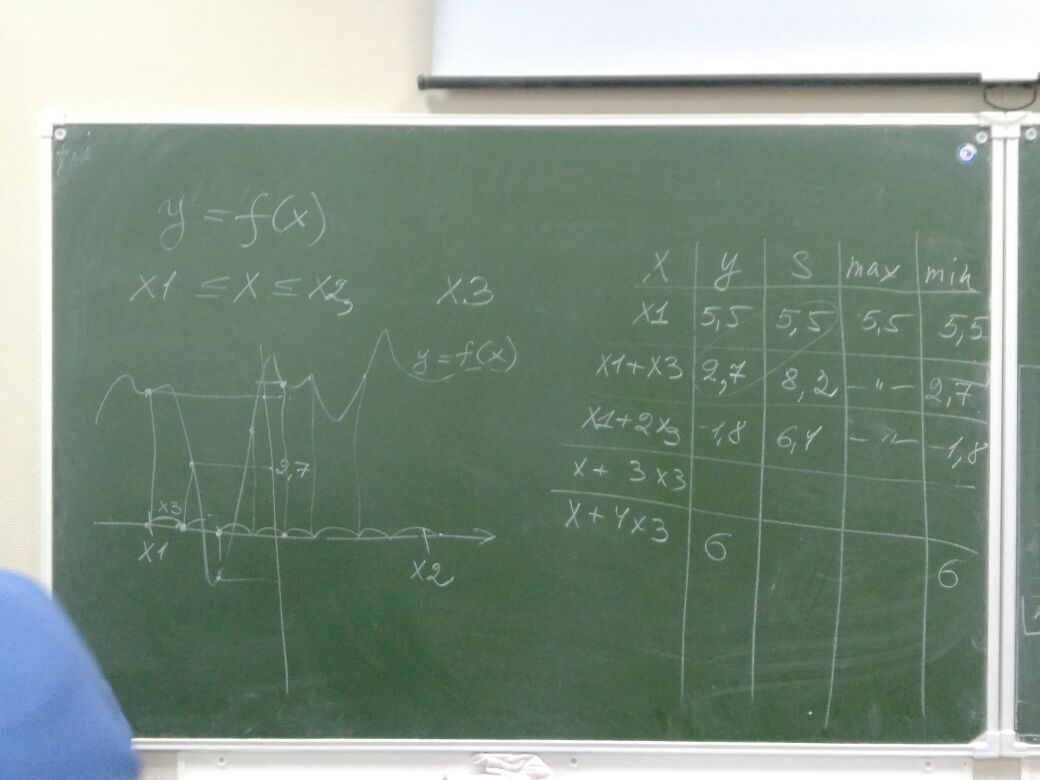 y = f(x)
x1 ≤ x ≤ x2 x3
y = f(x)
2,7
x3
x1 x2
x y S max min
x1 5,5 5,5 5,5 5,5
x1+x3 2,7 8,2 -"- 2,7
x1+2x3 -1,8 6,4 -"- -1,8
x + 3x3
x + 4x3 6
6